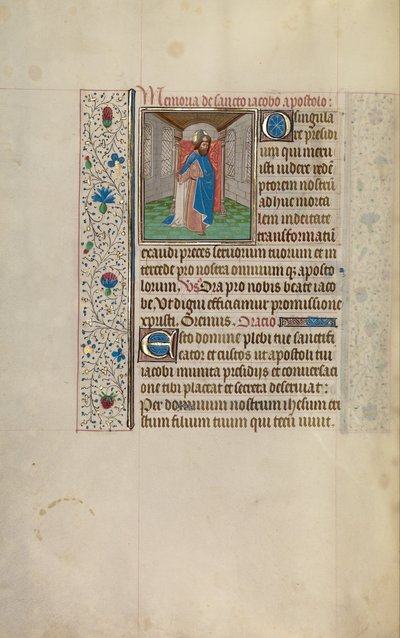 Memoria de sancto iacobo apostolo:
O singula
re presidi
um qui meru
isti videre redẽ
ptorem nostrũ
adhuc morta
lem in deitate
transformatũ
exaudi preces seruorum tuorum et in
tercede pro nostra omnium q; aposto
lorum. Vs̃ Ora pro nobis beate iaco
be. Vt digni efficiamur promissione
xpristi. Oremus. Oracio
Esto domine plebi tue sanctifi
cator et custos ut apostoli tui
iacobi munita presidiis et conuersaci
one tibi placeat et secreta deseruiat:
Per dominum nostrum ihesum cri
stum filium tuum qui tecũ uiuit.